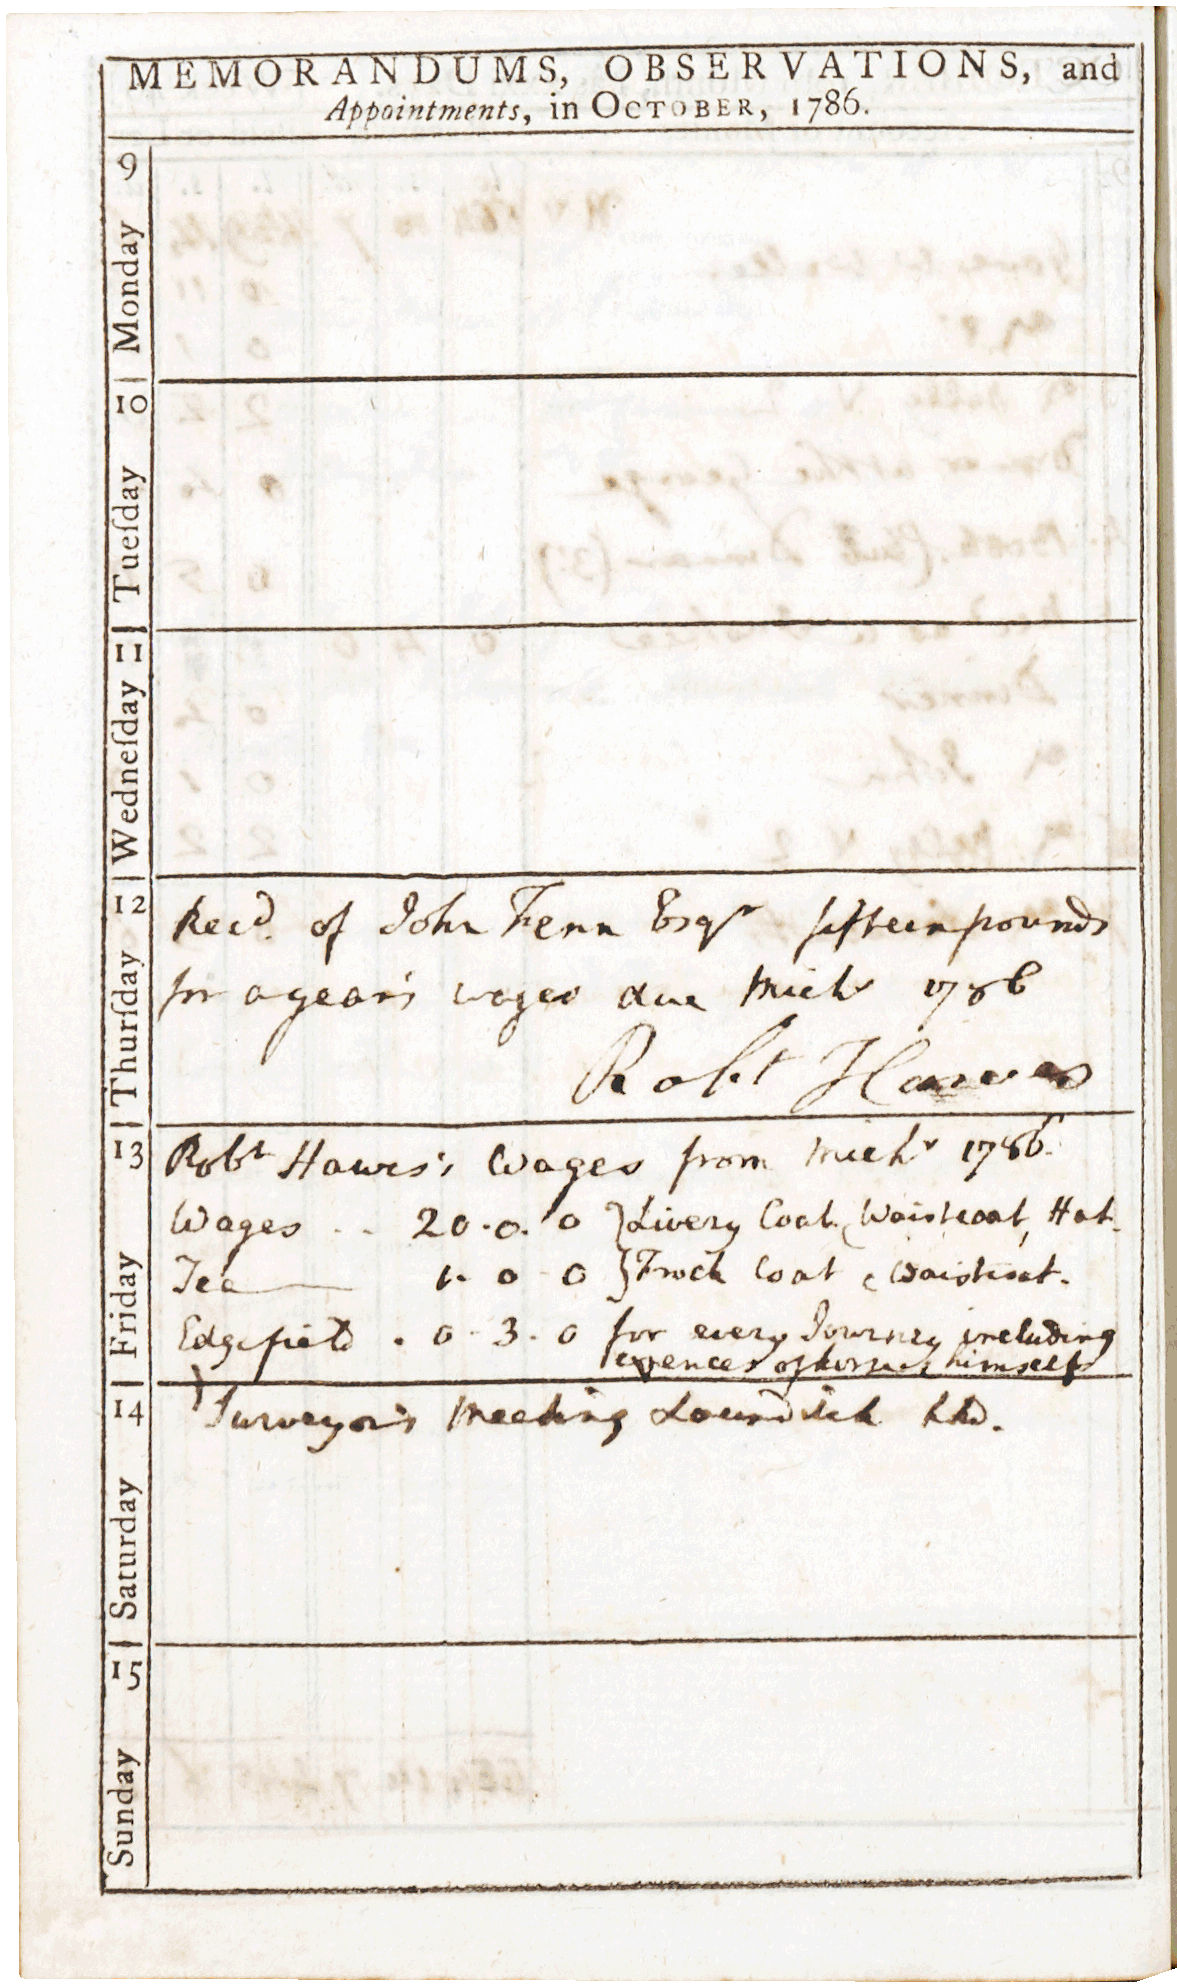 MEMORANDUMS, OBSERVATIONS, and
Appointments, in OCTOBER, 1786.
9 Monday
10 Tueſday
11 Wedneſday
12 Thurſday
Recd. of John Fenn Esqr fifteen pounds
for a year's wages due Michs 1786
Robt Hawes
13 Friday
Robt Hawes's Wages from Michs 1786.
Wages .. 20. 0. 0 } Livery Coat, Waistcoat, Hat.
Tea — 1. 0 - 0 } Frock Coat & Waistcoat.
Edgefield . 0 - 3 . 0 for every Journey including
expences of horse & himself
14 Saturday
Surveyor's Meeting Launditch Hd.
15 Sunday